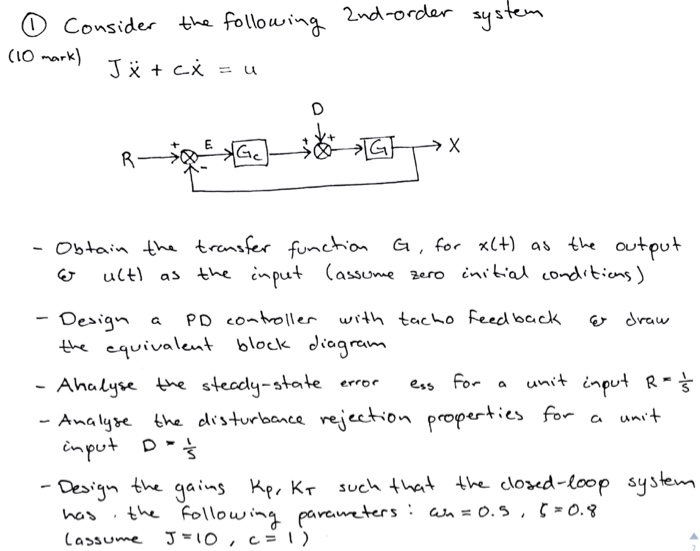 ① Consider the following 2nd-order system
(10 mark)
Jẍ + cẋ = u
D
R + E Gc + + G X
-
- Obtain the transfer function G, for x(t) as the output
& u(t) as the input (assume zero initial conditions)
- Design a PD controller with tacho feedback & draw
the equivalent block diagram
- Analyse the steady-state error ess for a unit input R = 1/s
- Analyse the disturbance rejection properties for a unit
input D = 1/s
- Design the gains Kp, KT such that the closed-loop system
has the following parameters : ωn = 0.5, ζ = 0.8
(assume J = 10, c = 1)